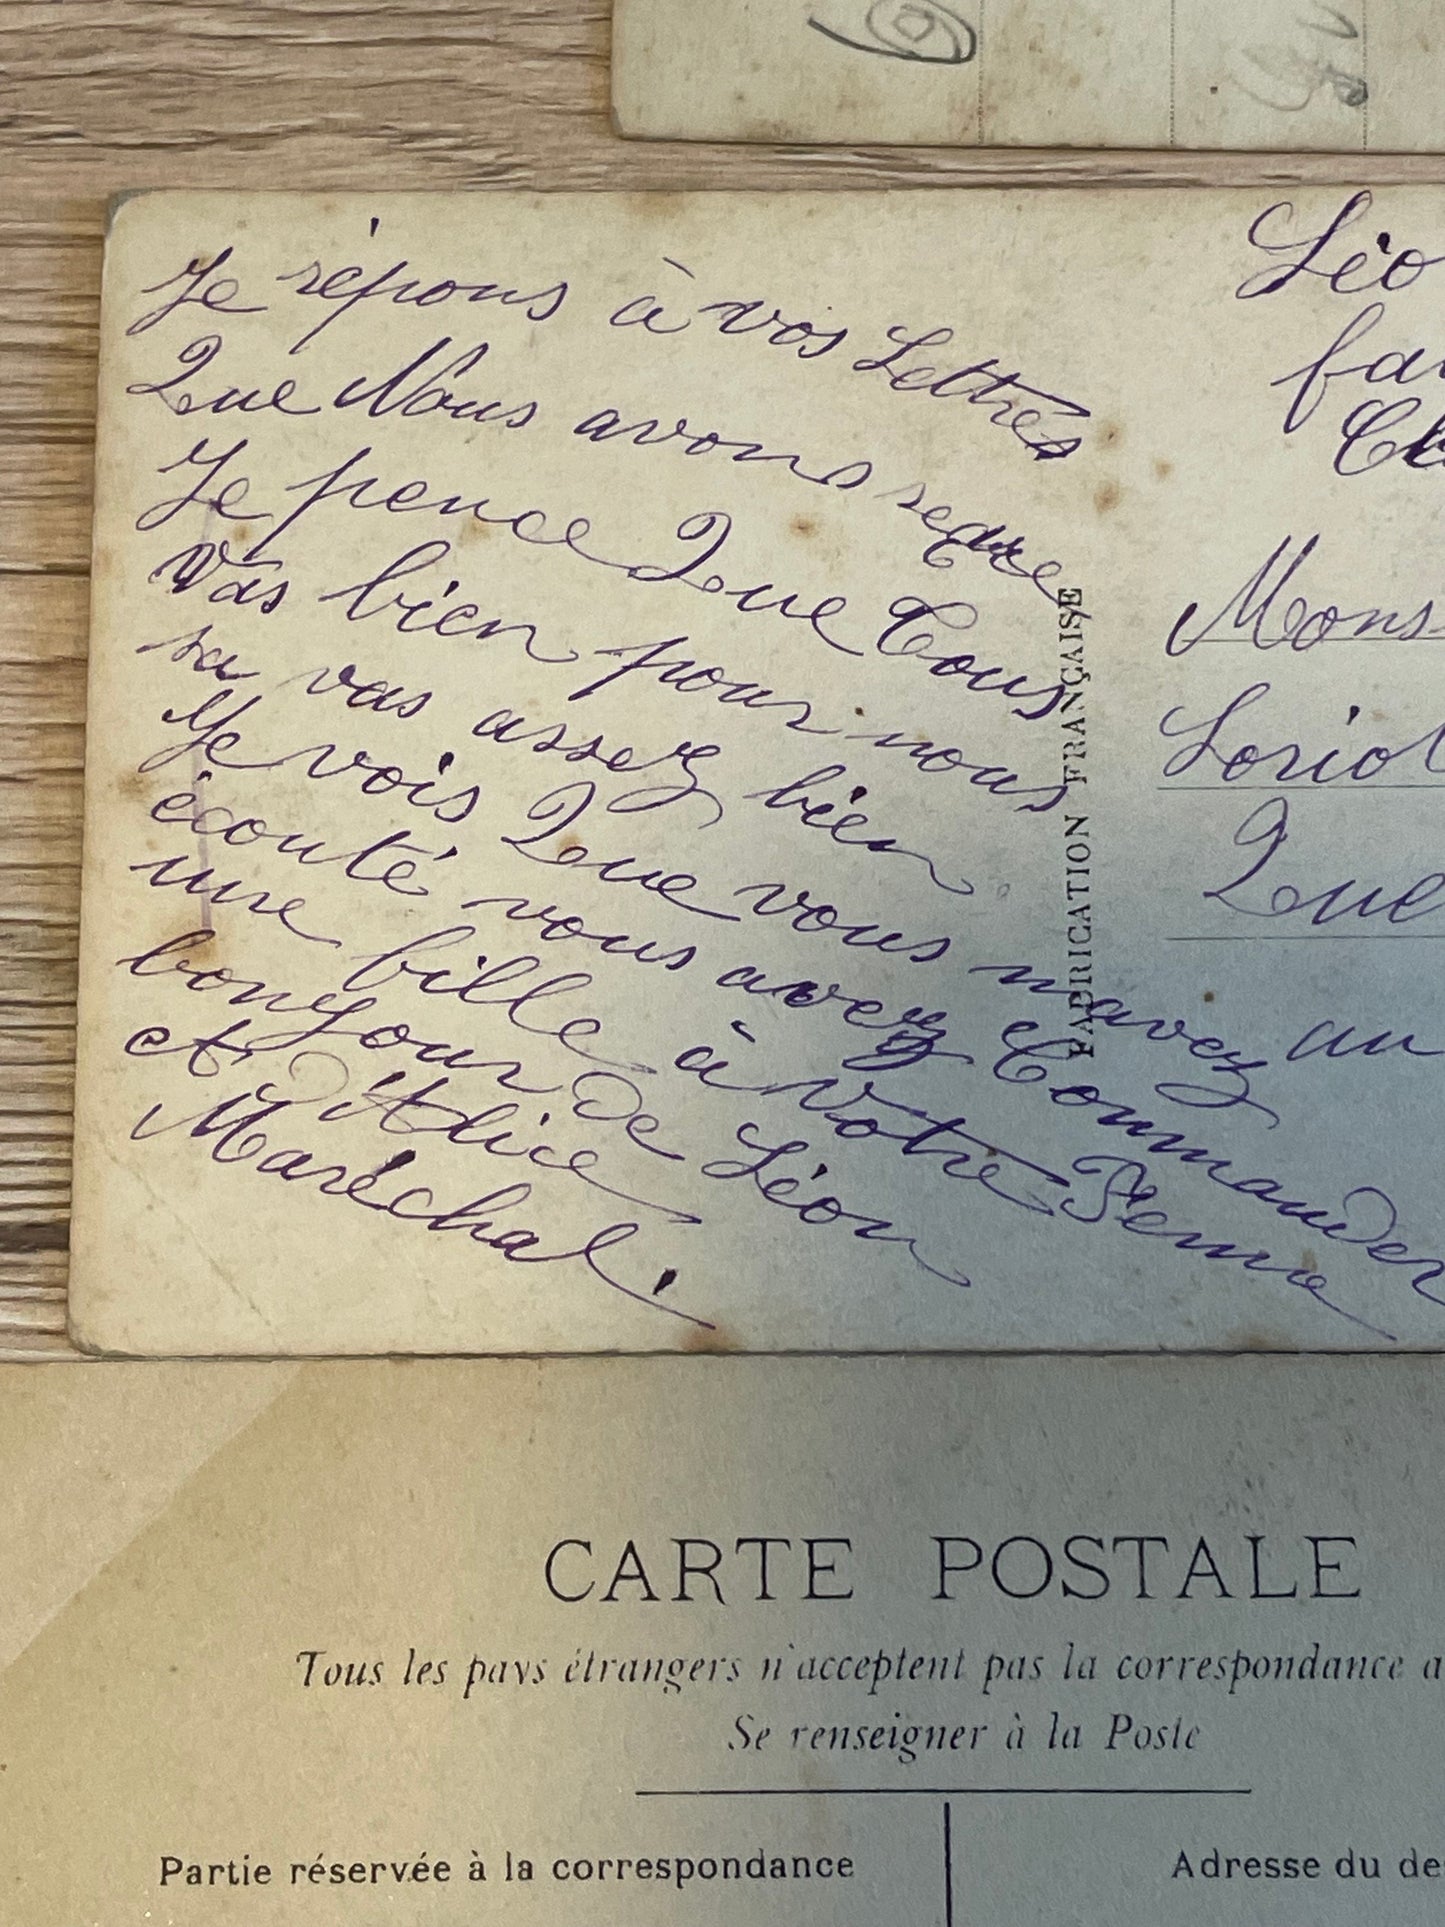 Je répons à vos Lettres
Que Nous avons recue
Je pence Que Tous
Vas bien pour nous
sa vas assez bien
Je vois Que vous navez au
écouté vous avez Commander
une fille à Votre Feme
bonjour de Léon
et d'Alice
Maréchal.
FABRICATION FRANÇAISE
Léo
fa
Mons
Loriot
Que
CARTE POSTALE
Tous les pays étrangers n'acceptent pas la correspondance a
Se renseigner à la Poste
Partie réservée à la correspondance
Adresse du de